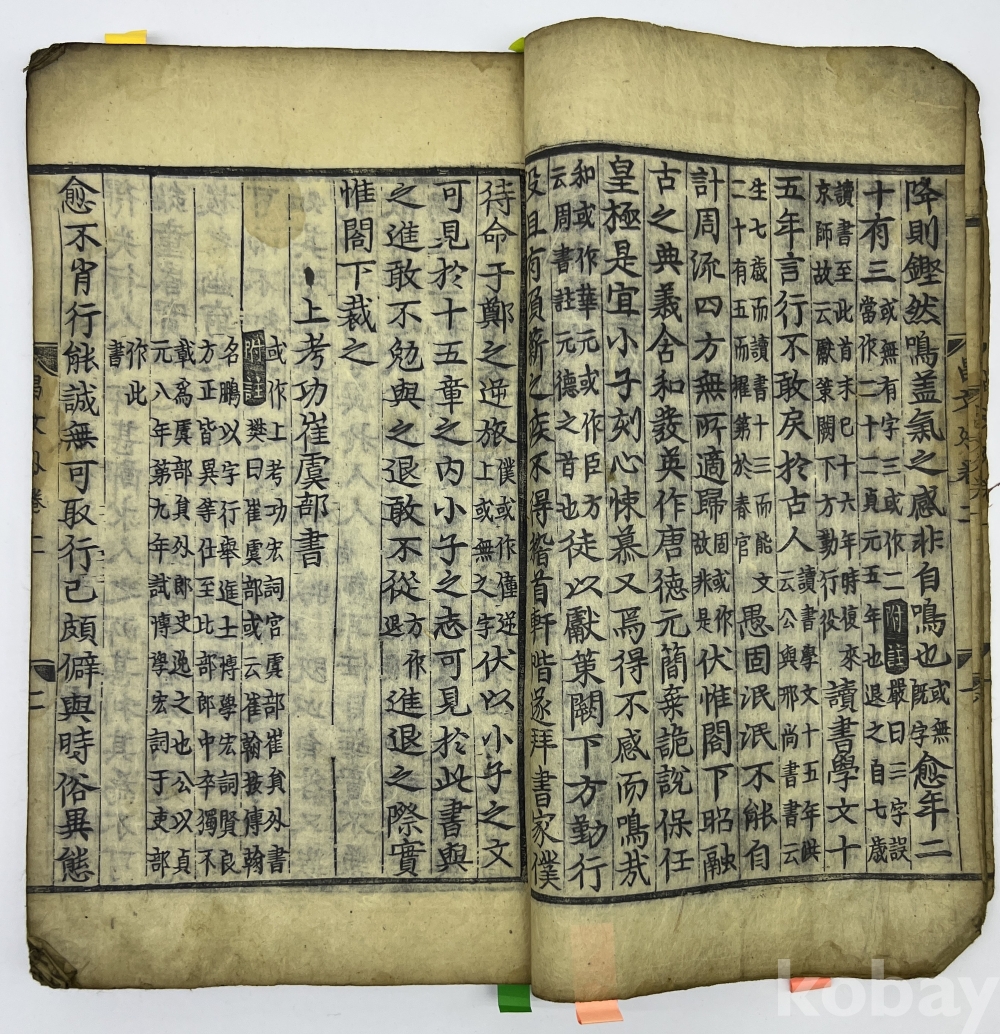 降則鏗然鳴盖氣之感非自鳴也或無旣字愈年二
十有三或無有字三或作二附註嚴曰三字誤當作二十二貞元五年也退之自七歲
讀書至此首末巳十六年時復來京師故云獻策闕下方勤行役讀書學文十
五年言行不敢戾於古人讀書學文十五年洪云公與邢尚書書云
生七歲而讀書十三而能文二十有五而擢第於春官愚固泯泯不能自
計周流四方無所適歸固或作故非是伏惟閤下昭融
古之典義含和發英作唐德元簡棄詭說保任
皇極是宜小子刻心悚慕又焉得不感而鳴哉
和或作華元或作臣方云周書註元德之首也徒以獻策闕下方勤行
役且有負薪之疾不得稽首軒階遂拜書家僕
待命于鄭之逆旅僕或作僮逆上或無之字伏以小子之文
可見於十五章之內小子之志可見於此書與
之進敢不勉與之退敢不從方作退進退之際實
惟閤下裁之
上考功崔虞部書
或作上考功宏詞官虞部崔員外書
附註樊曰崔虞部或云崔翰按傳翰
名鵬以字行舉進士博學宏詞賢良
方正皆異等仕至比部郎中卒獨不
載爲虞部員外郎史逸之也公以貞
元八年第九年試博學宏詞于吏部
作此書
愈不肖行能誠無可取行己頗僻與時俗異態
昌文外卷二
二
kobay